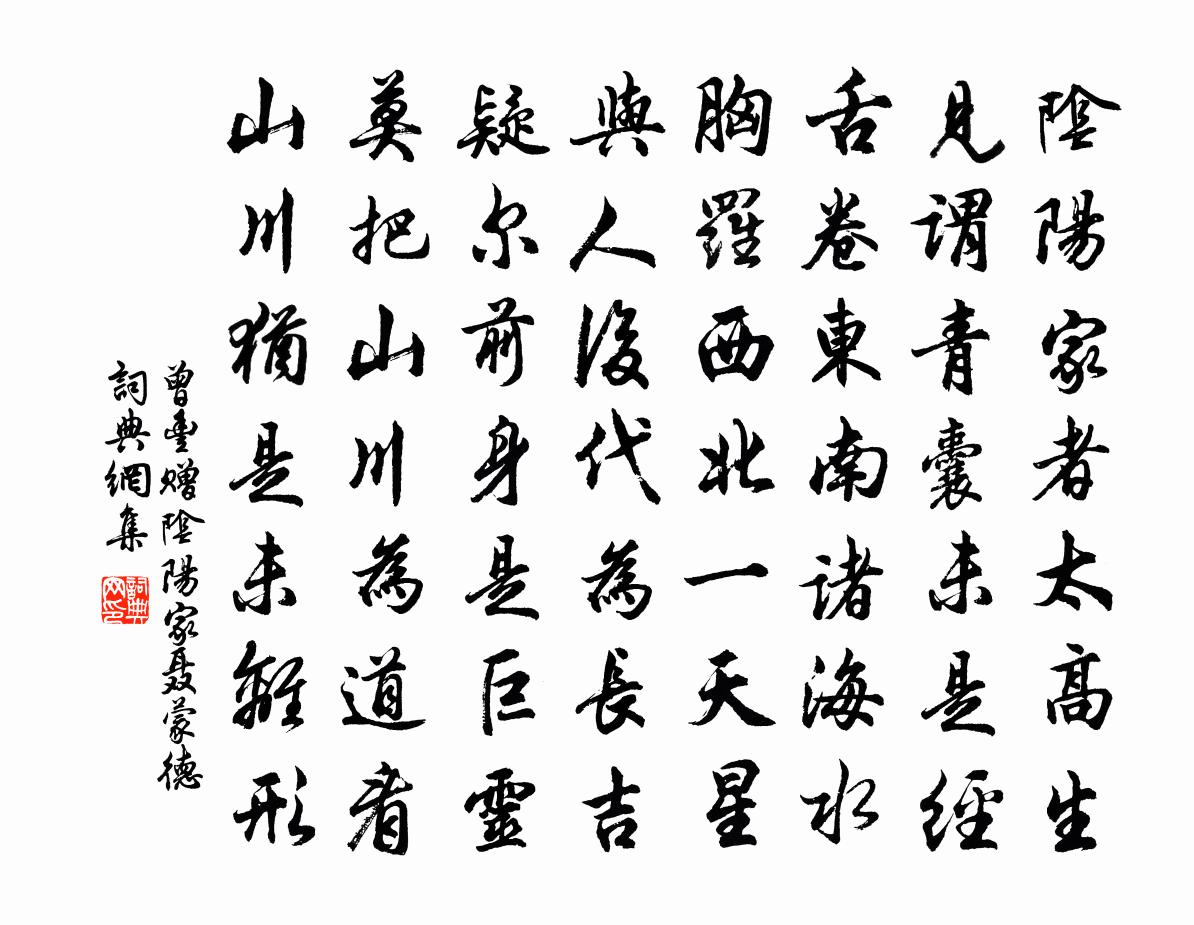 陰陽家者太高生
見謂青囊未是經
舌卷東南諸海水
胸羅西北一天星
與人後代為長吉
疑尔前身是巨靈
莫把山川為道看
山川猶是未離形
曾豐贈陰陽家聂蒙德
詞典網集
詞典网印